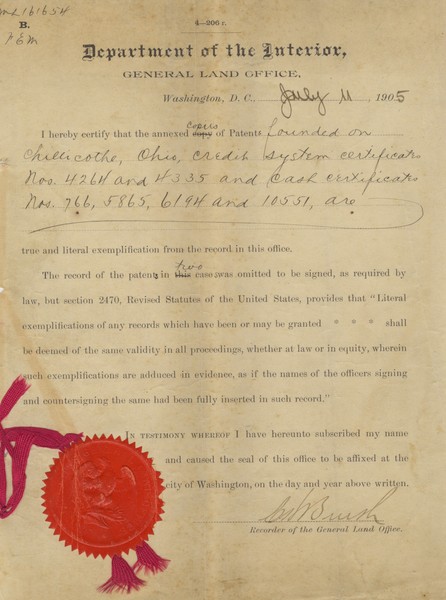 B.
4—206 r.
Department of the Interior,
GENERAL LAND OFFICE,
Washington, D. C., July 11, 1905
copies
I hereby certify that the annexed copy of Patents founded on
Chillicothe, Ohio, credit system certificates
Nos. 4264 and 4335 and Cash certificates
Nos. 766, 5865, 6194 and 10551, are
true and literal exemplification from the record in this office.
two
The record of the patents in this cases was omitted to be signed, as required by
law, but section 2470, Revised Statutes of the United States, provides that "Literal
exemplifications of any records which have been or may be granted * * * shall
be deemed of the same validity in all proceedings, whether at law or in equity, wherein
such exemplifications are adduced in evidence, as if the names of the officers signing
and countersigning the same had been fully inserted in such record."
IN TESTIMONY WHEREOF I have hereunto subscribed my name
and caused the seal of this office to be affixed at the
city of Washington, on the day and year above written.
Brush
Recorder of the General Land Office.